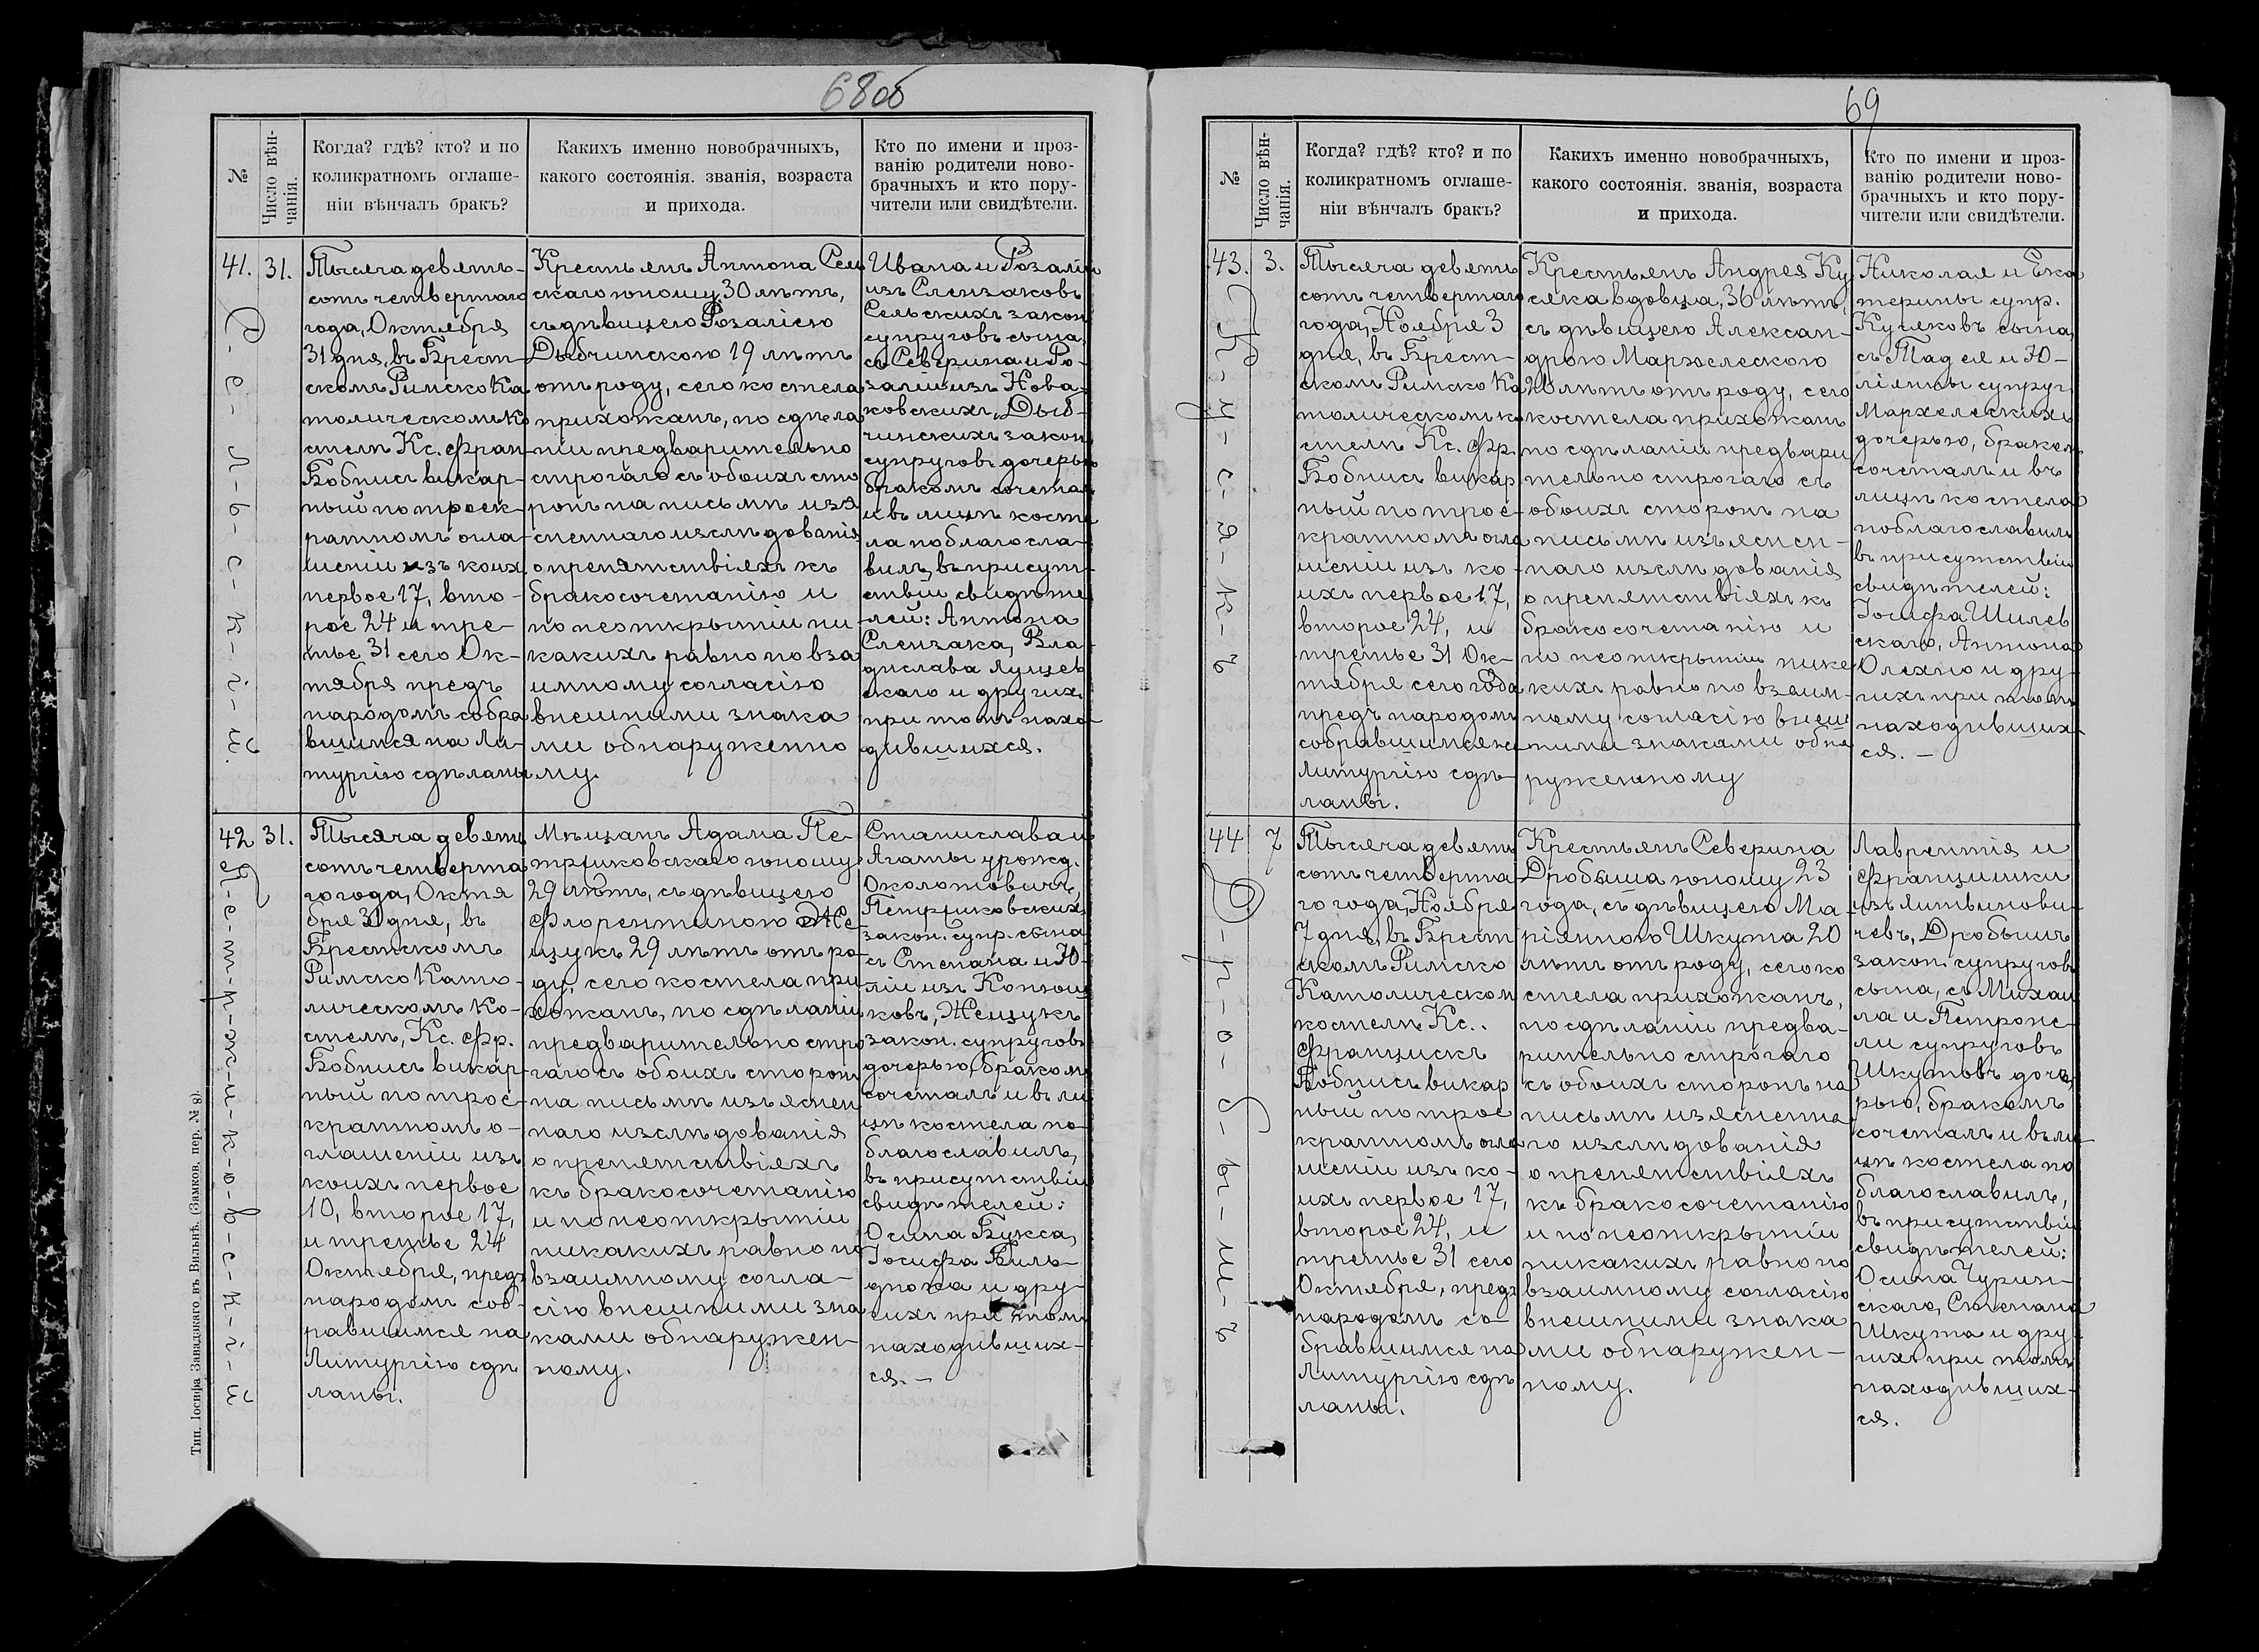 68об
№
Число вѣн-
чанія.
Когда? гдѣ? кто? и по
коликратномъ оглаше-
ніи вѣнчалъ бракъ?
Какихъ именно новобрачныхъ,
какого состоянія. званія, возраста
и прихода.
Кто по имени и проз-
ванію родители ново-
брачныхъ и кто пору-
чители или свидѣтели.
41.
31.
С-е-л-ь-с-к-і-й.
Тысяча девять-
сотъ четвертаго
года, Октября
31 дня, въ Брест-
скомъ Римско Ка
толическомъ Ко
стелѣ Кс. Фран-
Бобнисъ викар-
ный по троек-
ратномъ огла-
шеніи изъ коих
первое 17, вто-
рое 24 и тре-
тье 31 сего Ок-
тября предъ
народомъ собра
вшимся на Ли-
тургію сдѣланы
Крестьянъ Антона Сель
скаго юношу 30 лѣтъ,
съ дѣвицею Розаліею
Дыбчинскою 19 лѣтъ
отъ роду, сего костела
прихожанъ, по сдѣла
ніи предварительно
строгаго съ обоихъ сто
ронъ на письмѣ изъя
сненнаго изслѣдованія
о препятствіяхъ къ
бракосочетанію и
по неоткрытіи ни-
какихъ равно по вза
имному согласію
внешними знака
ми обнаруженно
му.
Ивана и Розаліи
изъ Слензаковъ
Сельскихъ закон
супруговъ сына,
съ Северина и Ро-
заліи изъ Нова-
ковскихъ, Дыб-
чинскихъ закон
супруговъ дочерью
бракомъ сочеталъ
и въ лицѣ косте
ла поблагосла-
вилъ, въ присут-
ствіи свидѣте
лей: Антона
Слензака, Вла
дислава Лущев
скаго и другихъ
при томъ нахо-
дившихся.
42
31.
П-е-т-р-ж-и-к-о-в-с-к-і-й
Тысяча девять
сотъ четверта
го года, Октя
бря 31 дня, въ
Брестскомъ
Римско Като-
лическомъ Ко-
стелѣ, Кс. Фр.
Бобнисъ викар-
ный по трое-
кратномъ о-
глашеніи изъ
коихъ первое
10, второе 17,
и третье 24
Октября, предъ
народомъ соб-
равшимся на
Литургію сдѣ
ланы.
Мѣщанъ Адама Пе-
тржиковскаго юношу
29 лѣтъ, съ дѣвицею
Флорентиною Же-
щукъ 29 лѣтъ отъ ро-
ду, сего костела при-
хожанъ, по сдѣланіи
предварительно стро
гаго съ обоихъ сторонъ
на письмѣ изъяснен
наго изслѣдованія
о препятствіяхъ
къ бракосочетанію
и по неоткрытіи
никакихъ равно по
взаимному согла-
сію внешними зна
ками обнаружен-
ному.
Станислава и
Агаты урожд.
Околотовичъ,
Петржиковскихъ
закон. супр. сына
съ Степана и Ю-
ліи изъ Конюш
ковъ, Жещукъ
закон. супруговъ
дочерью, бракомъ
сочеталъ и въ ли
цѣ костела по-
благославилъ,
въ присутствіи
свидѣтелей:
Осипа Букса,
Іосифа Виль-
днова и дру-
гихъ при томъ
находивших-
ся.-
Тип. Іосифа Завадзкаго въ Вильнѣ. (Замков. пер. № 8).
69
№
Число вѣн-
чанія.
Когда? гдѣ? кто? и по
коликратномъ оглаше-
ніи вѣнчалъ бракъ?
Какихъ именно новобрачныхъ,
какого состоянія. званія, возраста
и прихода.
Кто по имени и проз-
ванію родители ново-
брачныхъ и кто пору-
чители или свидѣтели.
43.
3.
К-у-с-я-к-ъ
Тысяча девять
сотъ четвертаго
года, Ноября 3
дня, въ Брест-
скомъ Римско Ка
толическомъ ко
стелѣ Кс. Фр.
Бобнисъ викар
ный по трое-
кратномъ огла
шеніи изъ ко-
ихъ первое 17,
второе 24, и
третье 31 Ок-
тября сего года
предъ народомъ
собравшимся на
Литургію сдѣ-
ланы.
Крестьянъ Андрея Ку
сяка вдовца, 36 лѣтъ,
съ дѣвицею Алексан-
дрою Мархелескою
20 лѣтъ отъ роду, сего
костела прихожанъ
по сдѣланіи предвари
тельно строгаго съ
обоихъ сторонъ на
письмѣ изъяснен-
наго изслѣдованія
о препятствіяхъ къ
бракосочетанію и
по неоткрытіи ника
кихъ равно по взаим-
ному согласію внеш
ними знаками обна
руженному
Николая и Ека
терины супр.
Кусяковъ сына,
съ Тадея и Ю-
ліанны супруг.
Мархелескихъ
дочерью, бракомъ
сочеталъ и въ
лицѣ костела
поблагославилъ
въ присутствіи
свидѣтелей:
Іосифа Шилев
скаго, Антона
Олехно и дру-
гихъ при томъ
находивших-
ся.-
44
7
Д-р-о-б-ы-ш-ъ
Тысяча девять
сотъ четверта-
го года, Ноября
7 дня, въ Брест
скомъ Римско
Католическом
костелѣ Кс.
Францискъ
Бобнисъ викар
ный по трое
кратномъ огла
шеніи изъ ко-
ихъ первое 17,
второе 24, и
третье 31 сего
Октября, предъ
народомъ со-
бравшимся на
Литургію сдѣ
ланы.
Крестьянъ Северина
Дробыша юношу 23
года, съ дѣвицею Ма-
ріанною Шкута 20
лѣтъ отъ роду, сего ко
стела прихожанъ,
по сдѣланіи предва-
рительно строгаго
съ обоихъ сторонъ на
письмѣ изъясненна
го изслѣдованія
о препятствіяхъ
къ бракосочетанію
и по неоткрытіи
никакихъ равно по
взаимному согласію
внешними знака
ми обнаружен-
ному.
Лаврентія и
Францишки
изъ Литвинови-
чевъ, Дробышъ
закон. супруговъ
сына, съ Михаи
ла и Петроне-
ли супруговъ
Шкутовъ доче
рью, бракомъ
сочеталъ и въ ли-
цѣ костела по
благославилъ,
въ присутствіи
свидѣтелей:
Осипа Чурин-
скаго, Степана
Шкута и дру
гихъ при томъ
находивших-
ся.